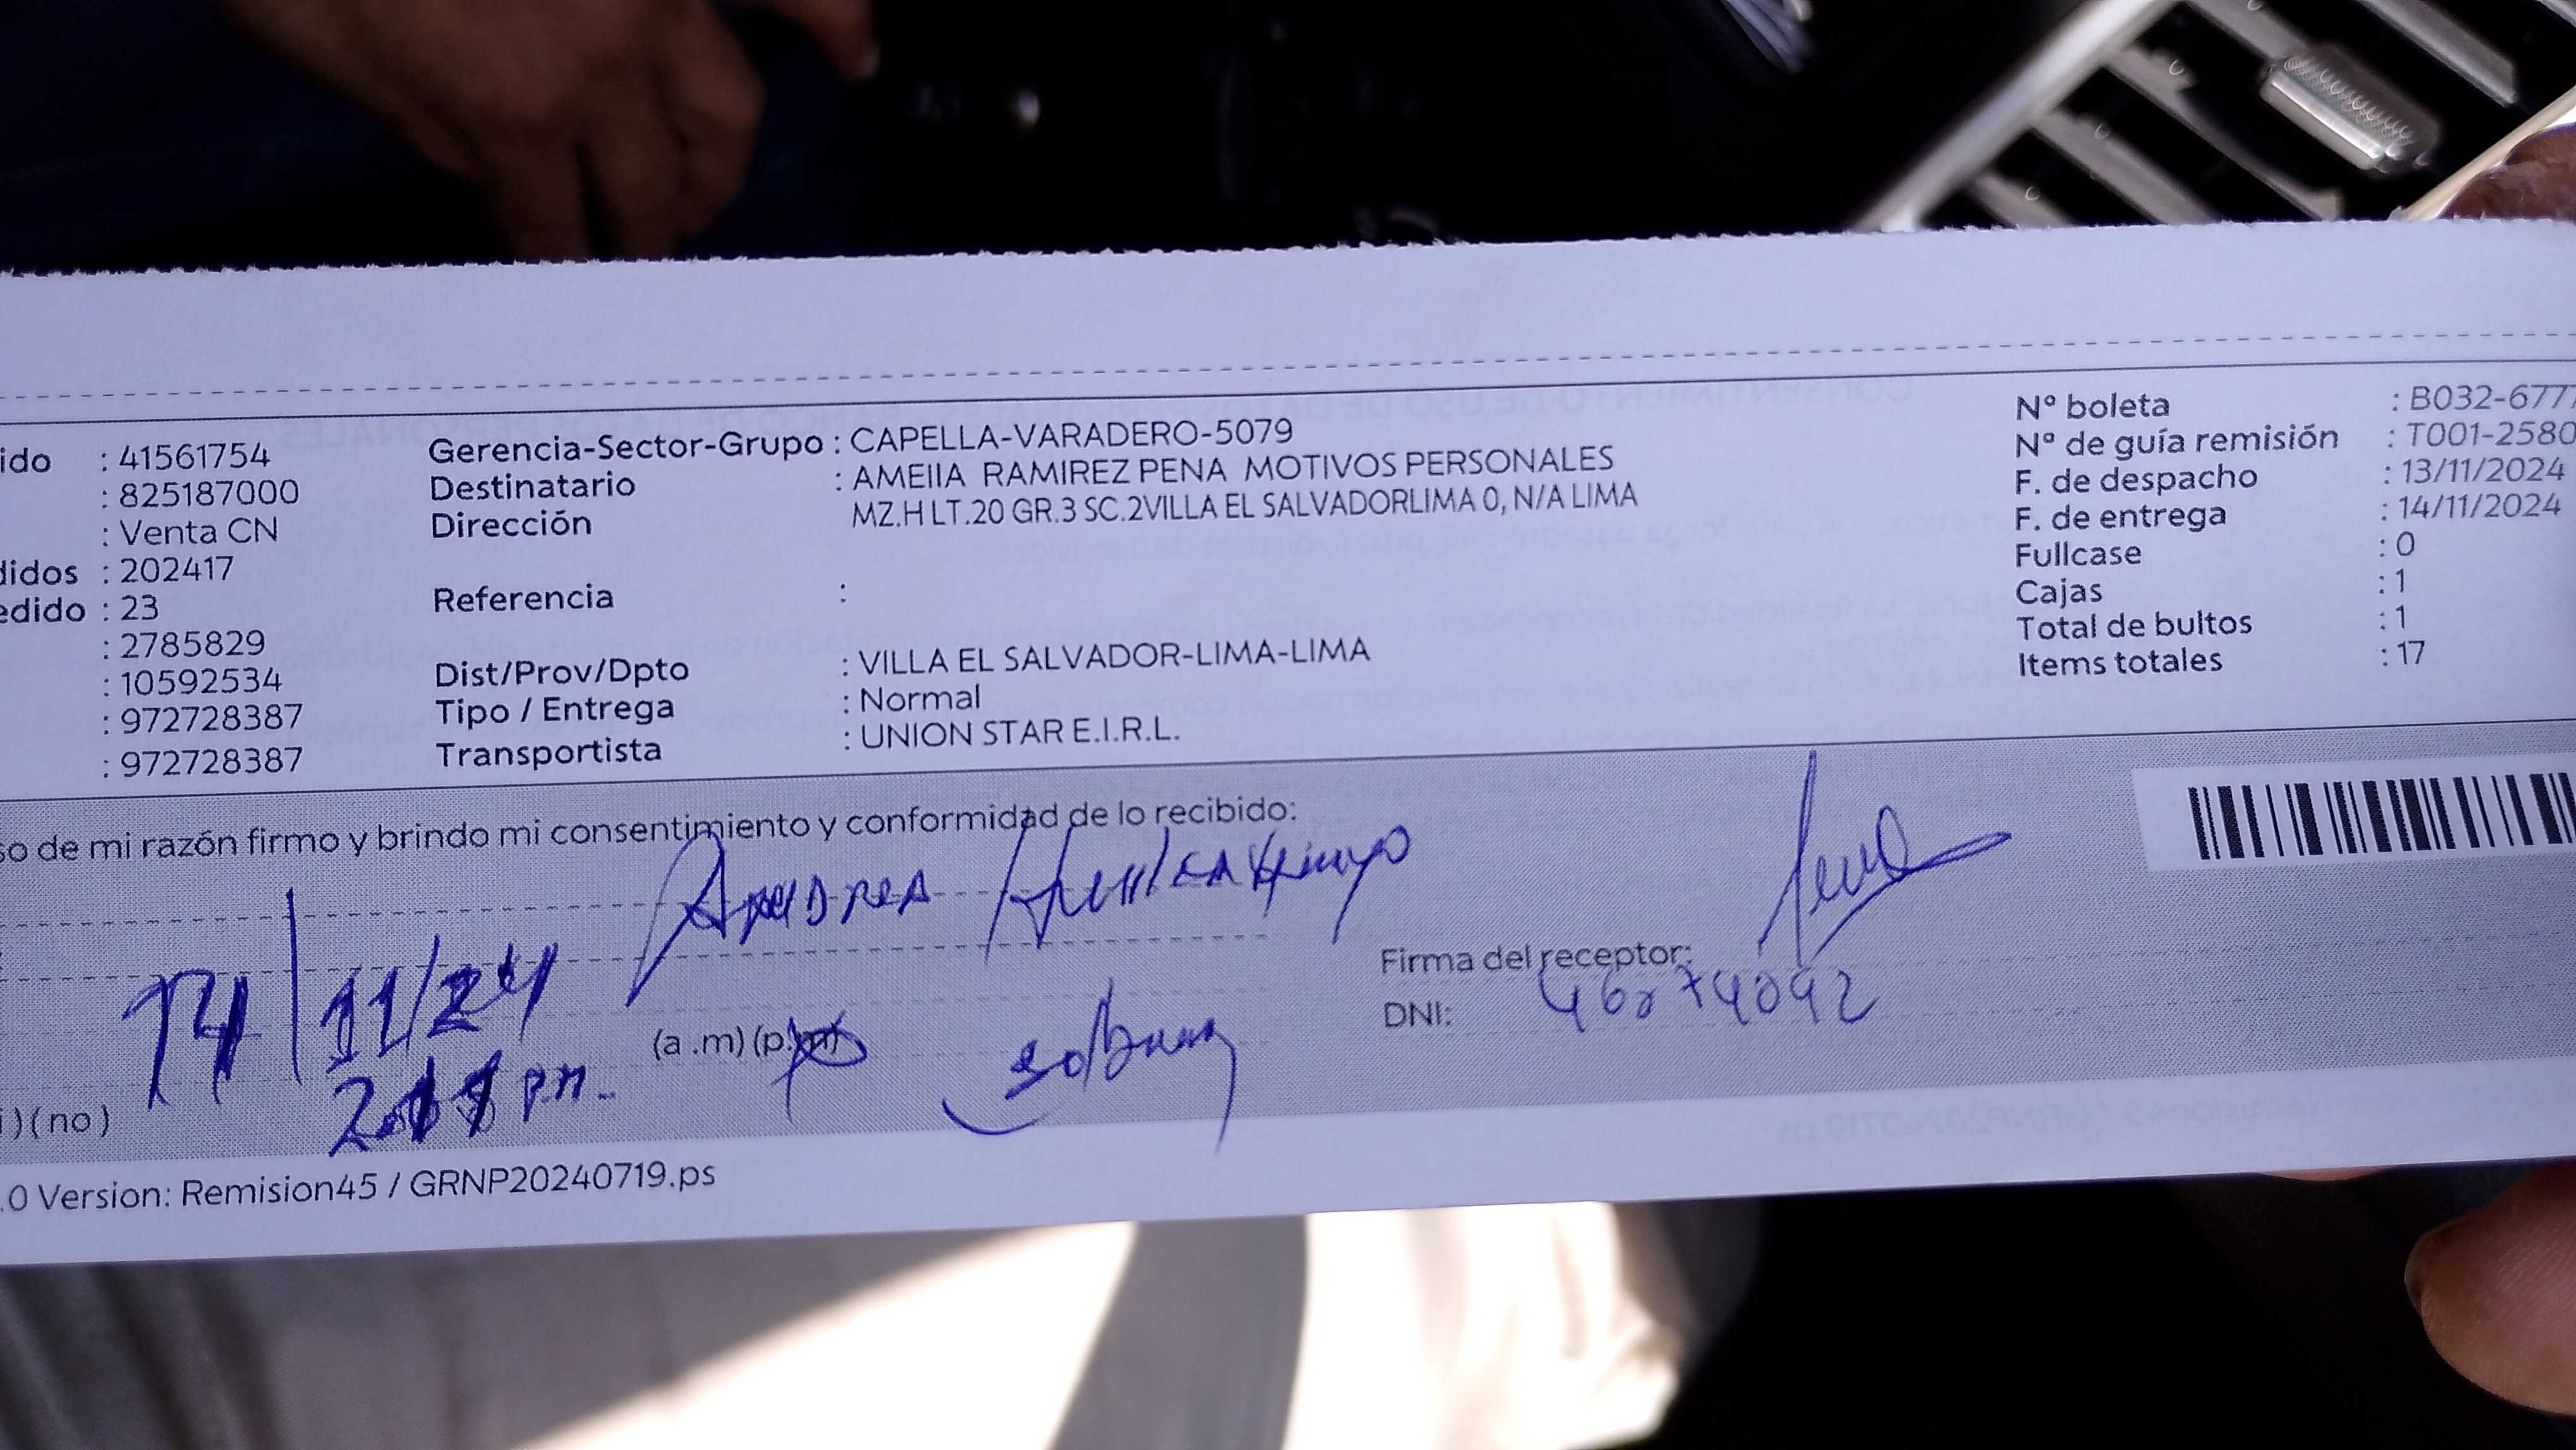 ido : 41561754
: 825187000
: Venta CN
didos : 202417
edido : 23
: 2785829
: 10592534
: 972728387
: 972728387
Gerencia-Sector-Grupo : CAPELLA-VARADERO-5079
Destinatario : AMEIIA RAMIREZ PENA MOTIVOS PERSONALES
Dirección MZ.H LT.20 GR.3 SC.2VILLA EL SALVADORLIMA 0, N/A LIMA
Referencia :
Dist/Prov/Dpto : VILLA EL SALVADOR-LIMA-LIMA
Tipo / Entrega : Normal
Transportista : UNION STAR E.I.R.L.
Nº boleta : B032-6777
Nº de guía remisión : T001-2580
F. de despacho : 13/11/2024
F. de entrega : 14/11/2024
Fullcase : 0
Cajas : 1
Total de bultos : 1
Items totales : 17
so de mi razón firmo y brindo mi consentimiento y conformidad de lo recibido:
14/11/24
(a .m) (p.m)
p.m.
Firma del receptor:
DNI:
i) (no)
.0 Version: Remision45 / GRNP20240719.ps